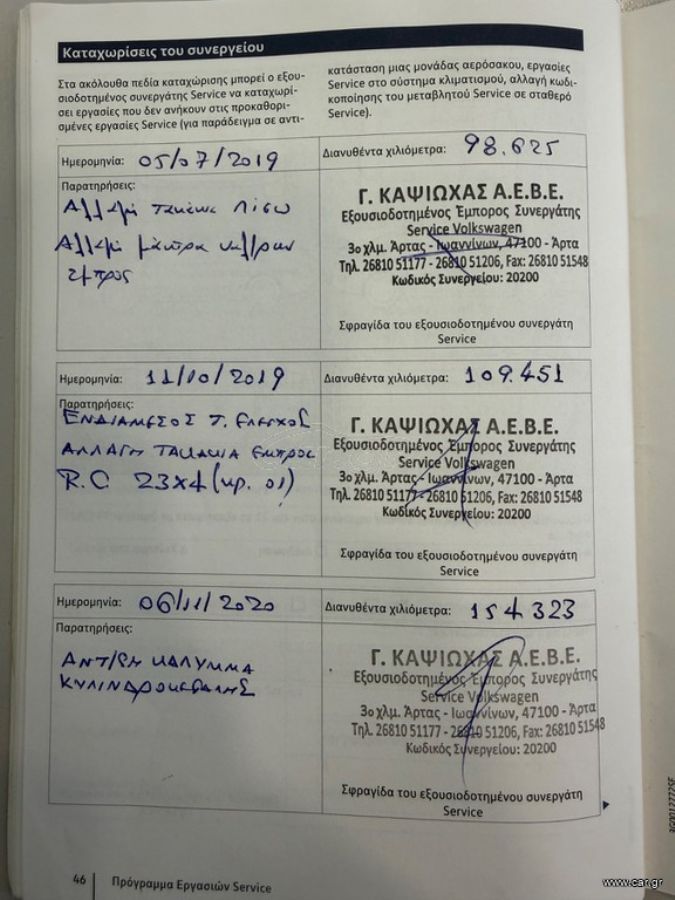 Καταχωρίσεις του συνεργείου
Στα ακόλουθα πεδία καταχώρισης μπορεί ο εξου-
σιοδοτημένος συνεργάτης Service να καταχωρί-
σει εργασίες που δεν ανήκουν στις προκαθορι-
σμένες εργασίες Service (για παράδειγμα σε αντι-
κατάσταση μιας μονάδας αερόσακου, εργασίες
Service στο σύστημα κλιματισμού, αλλαγή κωδι-
κοποίησης του μεταβλητού Service σε σταθερό
Service).
Ημερομηνία: 05/07/2019
Διανυθέντα χιλιόμετρα: 98.625
Παρατηρήσεις:
Αλλαγή τακάκια πίσω
Αλλαγή μάκτρα υαλ/ρων
εμπρός
Γ. ΚΑΨΙΩΧΑΣ Α.Ε.Β.Ε.
Εξουσιοδοτημένος Έμπορος Συνεργάτης
Service Volkswagen
3ο χλμ. Άρτας - Ιωαννίνων, 47100 - Άρτα
Τηλ. 26810 51177 - 26810 51206, Fax: 26810 51548
Κωδικός Συνεργείου: 20200
Σφραγίδα του εξουσιοδοτημένου συνεργάτη
Service
Ημερομηνία: 11/10/2019
Διανυθέντα χιλιόμετρα: 109.451
Παρατηρήσεις:
ΕΝΔΙΑΜΕΣΟΣ Τ. ΕΛΕΓΧΟΣ
ΑΛΛΑΓΗ ΤΑΚΑΚΙΑ ΕΜΠΡΟΣ
R.C 23x4 (κρ. 01)
Γ. ΚΑΨΙΩΧΑΣ Α.Ε.Β.Ε.
Εξουσιοδοτημένος Έμπορος Συνεργάτης
Service Volkswagen
3ο χλμ. Άρτας - Ιωαννίνων, 47100 - Άρτα
Τηλ. 26810 51177 - 26810 51206, Fax: 26810 51548
Κωδικός Συνεργείου: 20200
Σφραγίδα του εξουσιοδοτημένου συνεργάτη
Service
Ημερομηνία: 06/11/2020
Διανυθέντα χιλιόμετρα: 154323
Παρατηρήσεις:
ΑΝΤ/ΣΗ ΚΑΛΥΜΜΑ
ΚΥΛΙΝΔΡΟΚΕΦΑΛΗΣ
Γ. ΚΑΨΙΩΧΑΣ Α.Ε.Β.Ε.
Εξουσιοδοτημένος Έμπορος Συνεργάτης
Service Volkswagen
3ο χλμ. Άρτας - Ιωαννίνων, 47100 - Άρτα
Τηλ. 26810 51177 - 26810 51206, Fax: 26810 51548
Κωδικός Συνεργείου: 20200
Σφραγίδα του εξουσιοδοτημένου συνεργάτη
Service
46 Πρόγραμμα Εργασιών Service
www.car.gr